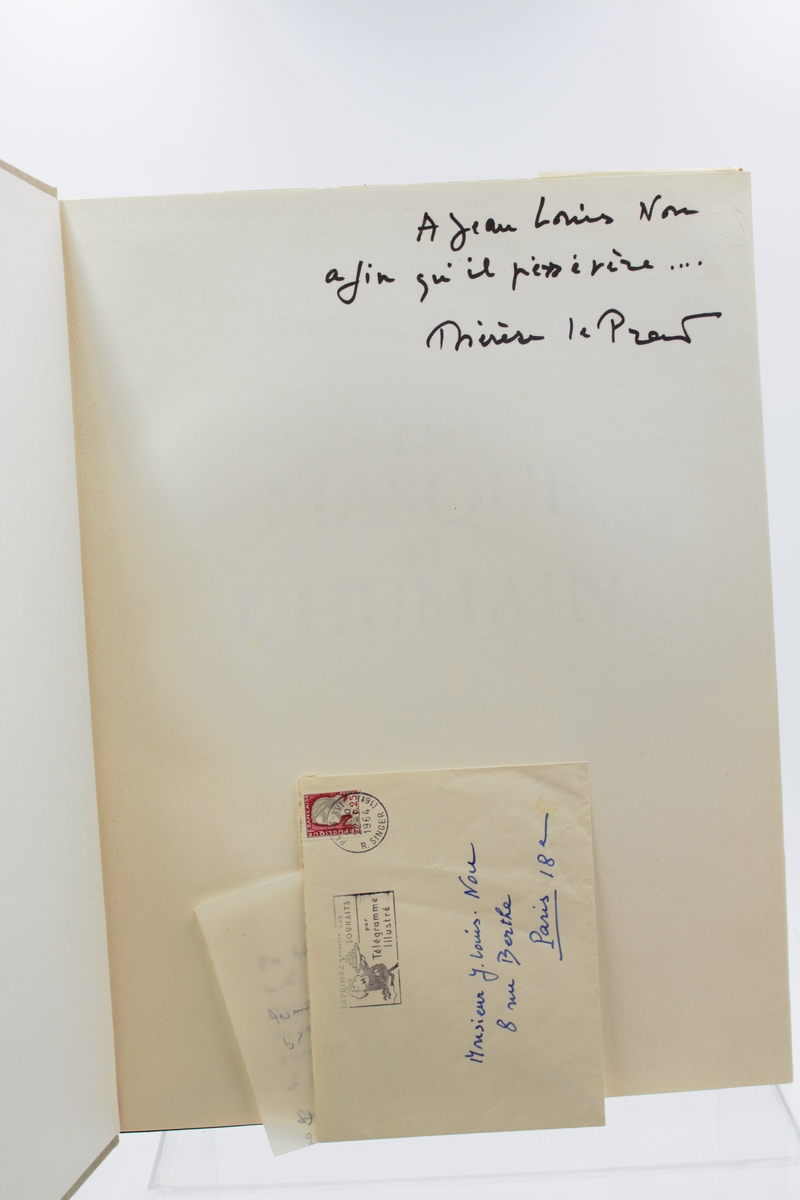 A Jean Louis Nou
afin qu'il persévère ....
Thérèse le Prat
MASQUE
ET
L'HUMAIN
0.25
1964
R. SINGER
SOUHAITS
par
Télégramme
Illustré
Monsieur J. Louis. Nou
8 rue Berthe
Paris 18e